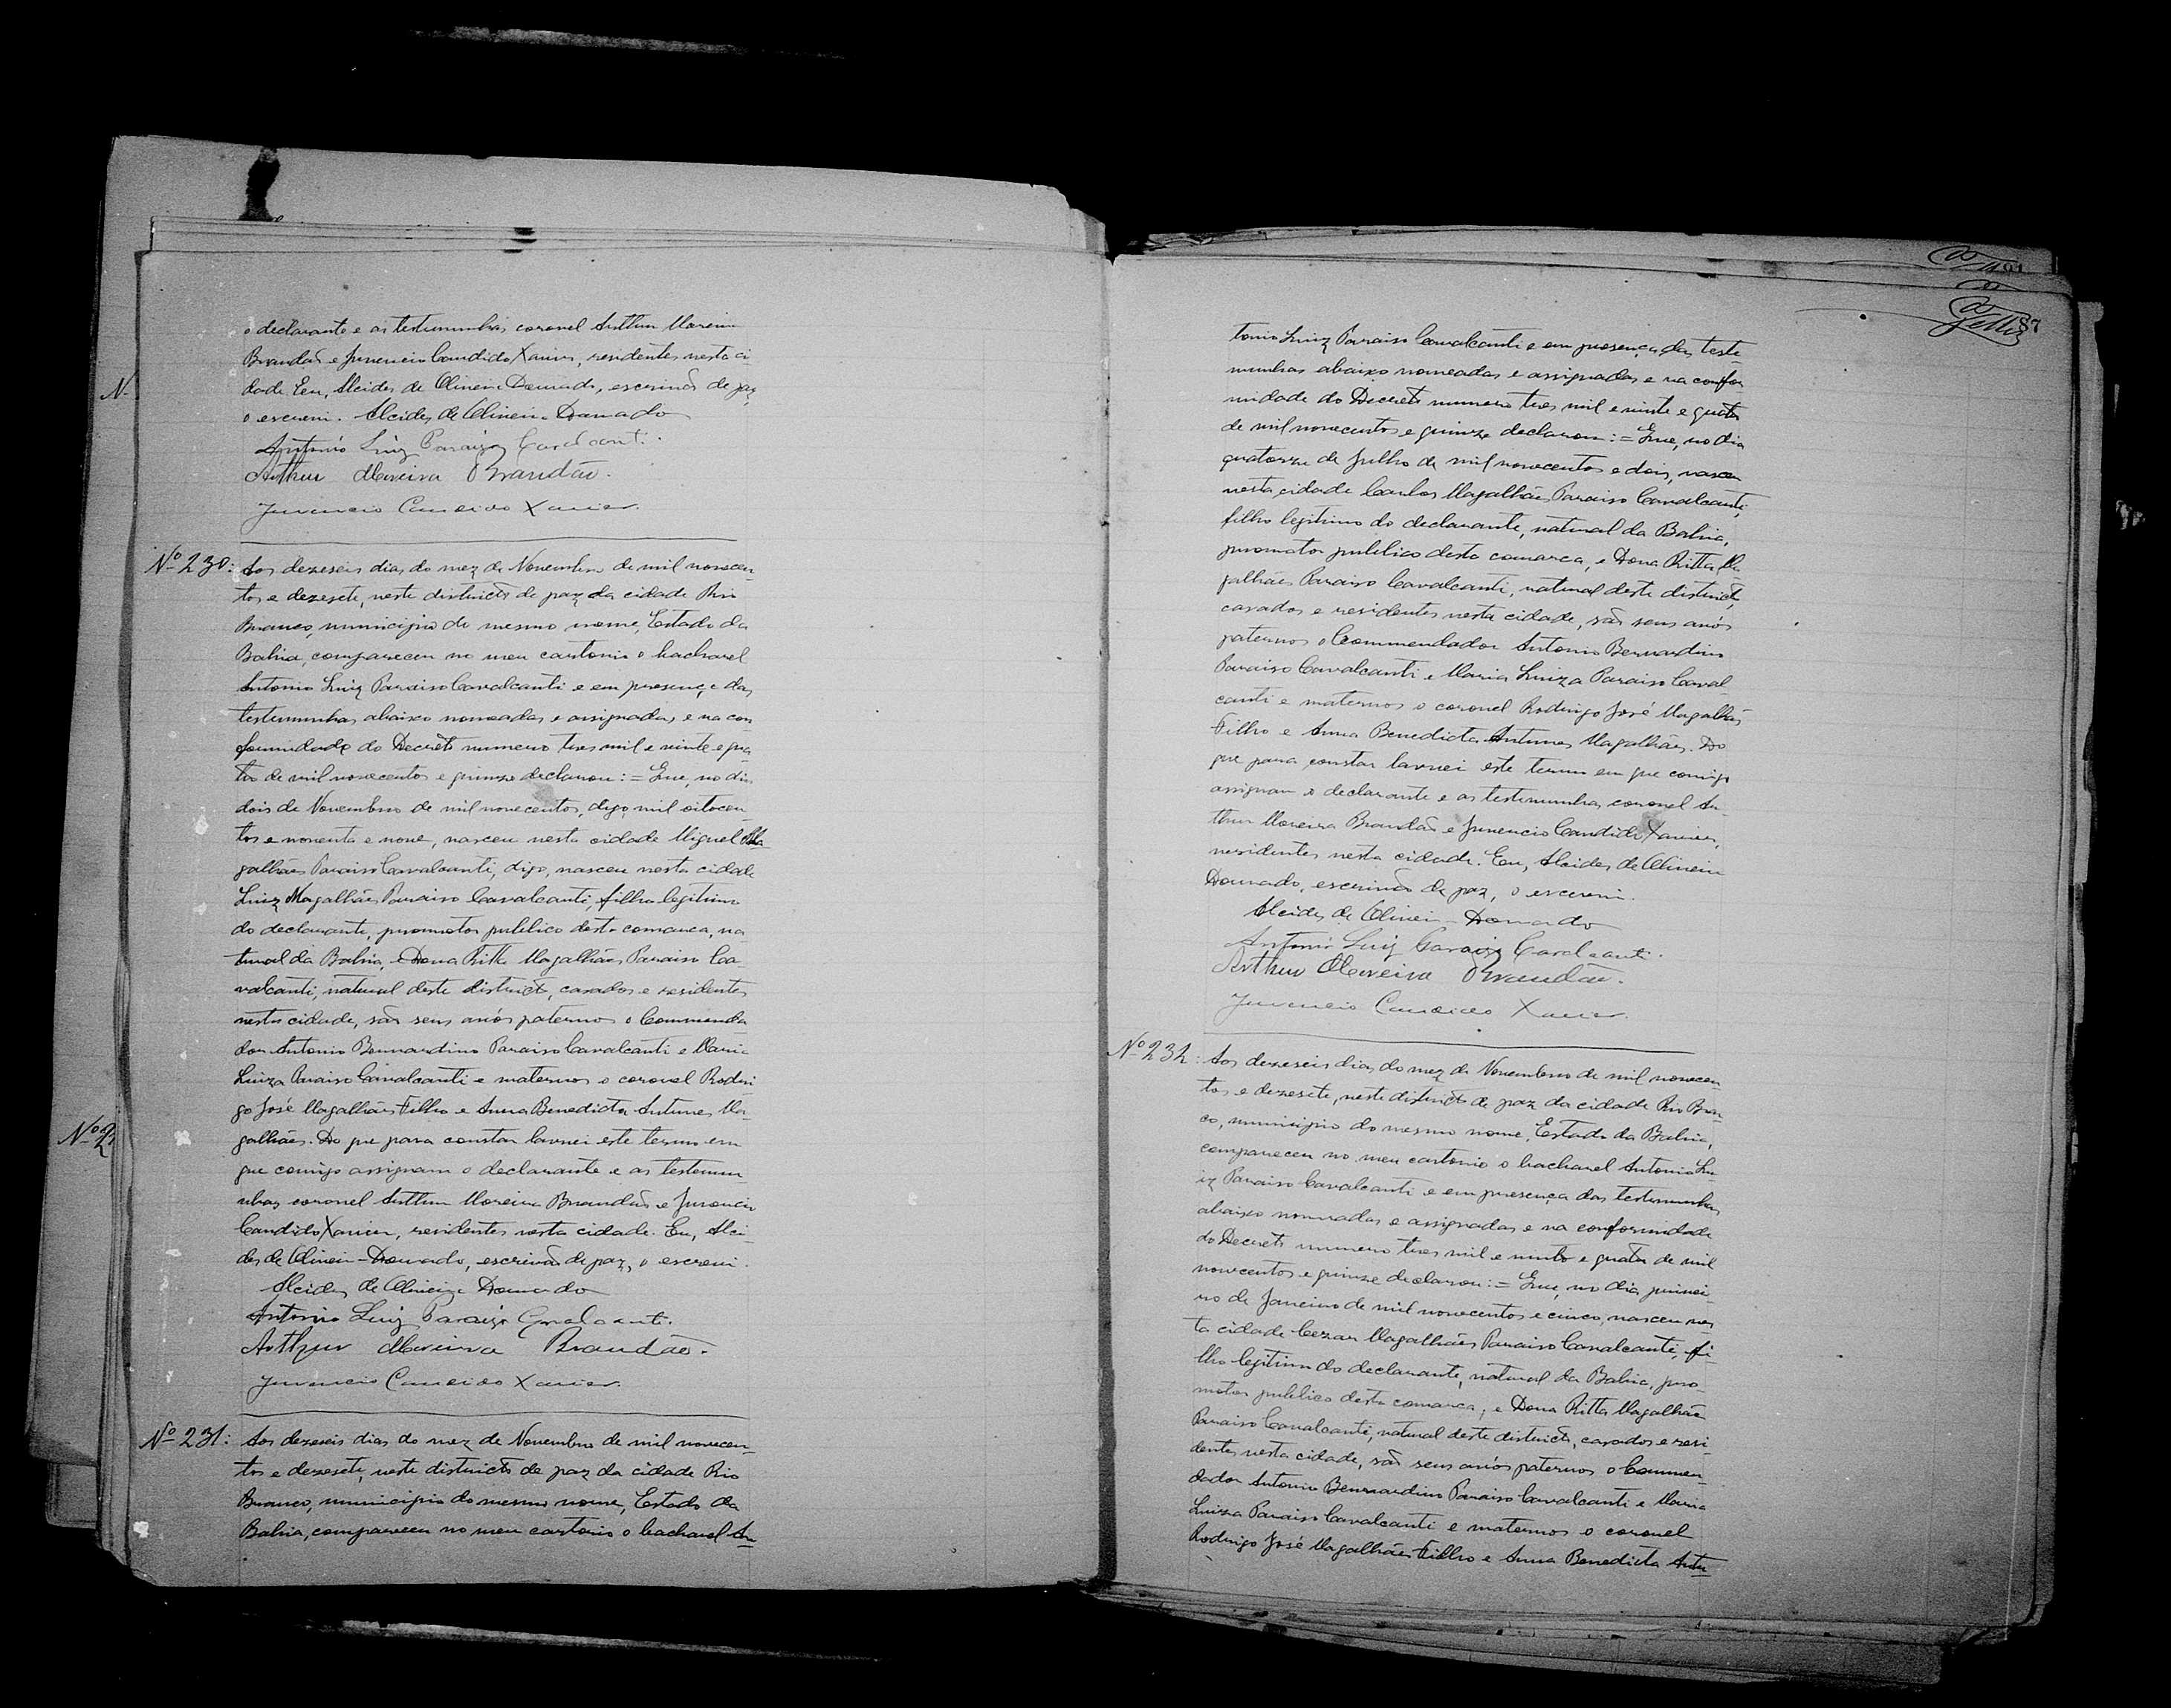 o declarante e as testemunhas coronel Arthur Moreira
Brandão e Juvencio Candido Xavier, residentes nesta ci-
dade. Eu, Alcides de Oliveira Dourado, escrivão de paz,
o escrevi. Alcides de Oliveira Dourado
Antonio Luiz Paraizo Cavalcanti.
Arthur Moreira Brandão.
Juvencio Candido Xavier.
Nº 230: Aos dezeseis dias do mez de Novembro de mil novecen-
tos e dezesete, neste districto de paz da cidade Rio
Branco, municipio do mesmo nome, Estado da
Bahia, compareceu no meu cartorio o bacharel
Antonio Luiz Paraiso Cavalcanti e em presença das
testemunhas abaixo nomeadas e assignadas e na con
formidade do Decreto numero tres mil e vinte e qua
tro de mil novecentos e quinze declarou: = Que, no dia
dois de Novembro de mil novecentos, digo, mil oitocen-
tos e noventa e nove, nasceu nesta cidade Miguel Ma
galhães Paraiso Cavalcanti, digo, nasceu nesta cidade
Luiz Magalhães Paraiso Cavalcanti, filho legitimo
do declarante, promotor publico desta comarca, na
tural da Bahia, e Dona Ritta Magalhães Paraiso Ca-
valcanti, natural deste districto, casados e residentes
nesta cidade, são seus avós paternos o Commenda
dor Antonio Bernardino Paraiso Cavalcanti e Maria
Luiza Paraiso Cavalcanti e maternos o coronel Rodri
go José Magalhães Filho e Anna Benedicta Antunes Ma-
galhães. Do que para constar lavrei este termo em
que comigo assignam o declarante e as testemu
nhas coronel Arthur Moreira Brandão e Juvencio
Candido Xavier, residentes nesta cidade. Eu, Alci-
des de Oliveira Dourado, escrivão de paz, o escrevi.
Alcides de Oliveira Dourado
Antonio Luiz Paraizo Cavalcanti.
Arthur Moreira Brandão.
Juvencio Candido Xavier.
Nº 231: Aos dezeseis dias do mez de Novembro de mil novecen-
tos e dezesete, neste districto de paz da cidade Rio
Branco, municipio do mesmo nome, Estado da
Bahia, compareceu no meu cartorio o bacharel An
87
tonio Luiz Paraiso Cavalcanti e em presença das teste
munhas abaixo nomeadas e assignadas e na confor
midade do Decreto numero tres mil e vinte e quatro
de mil novecentos e quinze declarou: = Que, no dia
quatorze de Julho de mil novecentos e dois, nasceu
nesta cidade Carlos Magalhães Paraiso Cavalcanti,
filho legitimo do declarante, natural da Bahia,
promotor publico desta comarca, e Dona Ritta Ma
galhães Paraiso Cavalcanti, natural deste districto,
casados e residentes nesta cidade, são seus avós
paternos o Commendador Antonio Bernardino
Paraiso Cavalcanti e Maria Luiza Paraiso Caval-
canti e maternos o coronel Rodrigo José Magalhães
Filho e Anna Benedicta Antunes Magalhães. Do
que para constar lavrei este termo em que comigo
assignam o declarante e as testemunhas coronel Ar
thur Moreira Brandão e Juvencio Candido Xavier,
residentes nesta cidade. Eu, Alcides de Oliveira
Dourado, escrivão de paz, o escrevi.
Alcides de Oliveira Dourado
Antonio Luiz Paraizo Cavalcanti.
Arthur Moreira Brandão.
Juvencio Candido Xavier.
Nº 232: Aos dezeseis dias do mez de Novembro de mil novecen
tos e dezesete, neste districto de paz da cidade Rio Bran
co, municipio do mesmo nome, Estado da Bahia,
compareceu no meu cartorio o bacharel Antonio Lu
iz Paraiso Cavalcanti e em presença das testemunhas
abaixo nomeadas e assignadas e na conformidade
do Decreto numero tres mil e vinte e quatro de mil
novecentos e quinze declarou: = Que, no dia primei-
ro de Janeiro de mil novecentos e cinco, nasceu nes
ta cidade Cezar Magalhães Paraiso Cavalcanti, fi-
lho legitimo do declarante, natural da Bahia, pro-
motor publico desta comarca, e Dona Ritta Magalhães
Paraiso Cavalcanti, natural deste districto, casados e resi-
dentes nesta cidade, são seus avós paternos o Commen-
dador Antonio Bernardino Paraiso Cavalcanti e Maria
Luiza Paraiso Cavalcanti e maternos o coronel
Rodrigo José Magalhães Filho e Anna Benedicta Antu